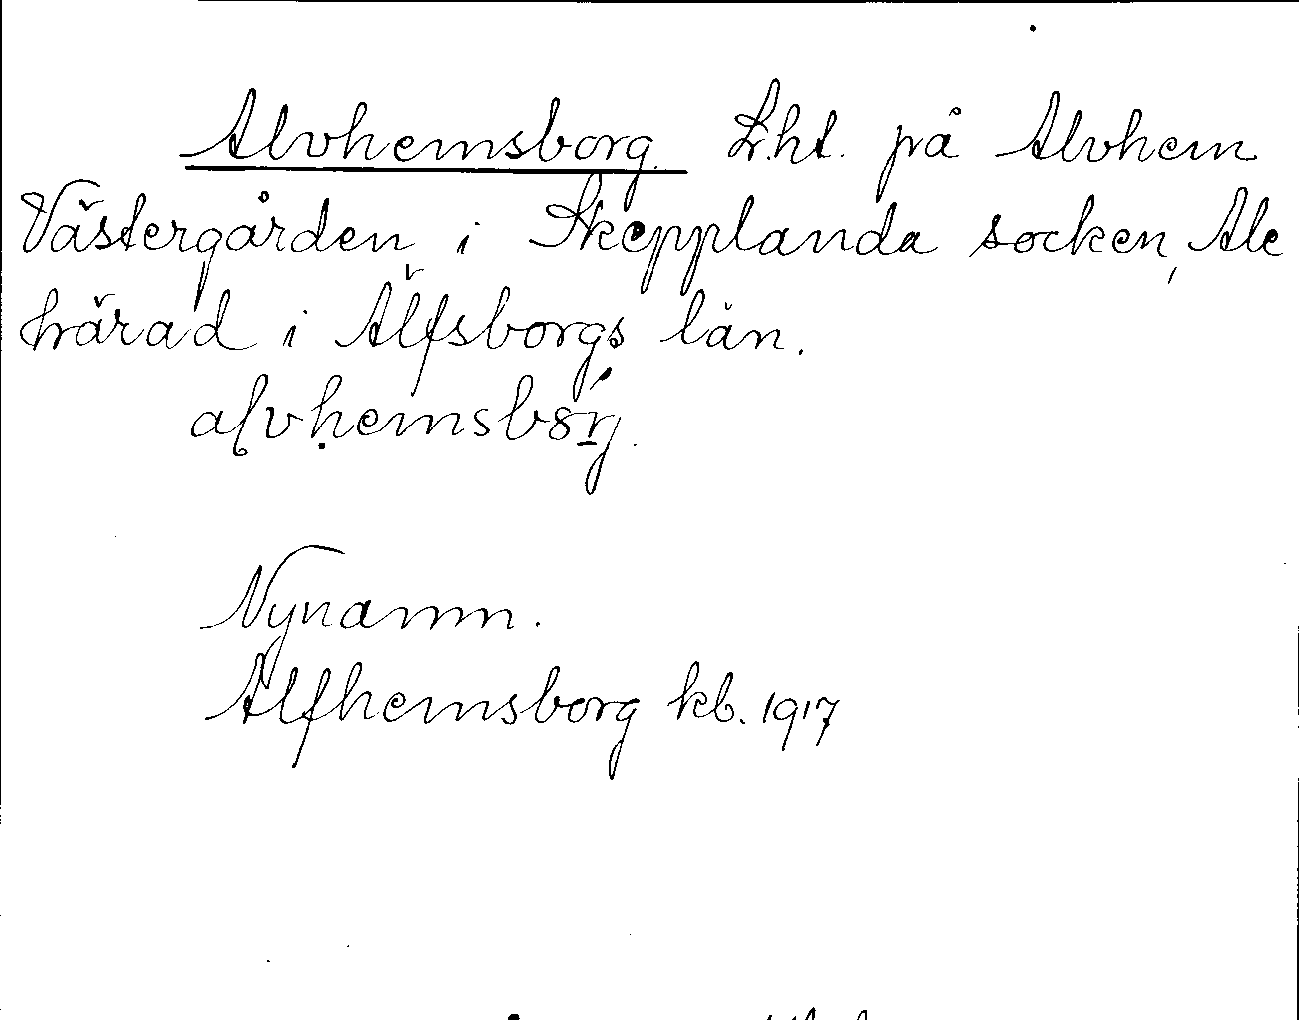 Alvhemsborg. Lht. på Alvhem
Västergården i Skepplanda socken, Ale
härad i Älfsborgs län.
alvhemsborj.
Nynamn.
Alfhemsborg kb. 1917